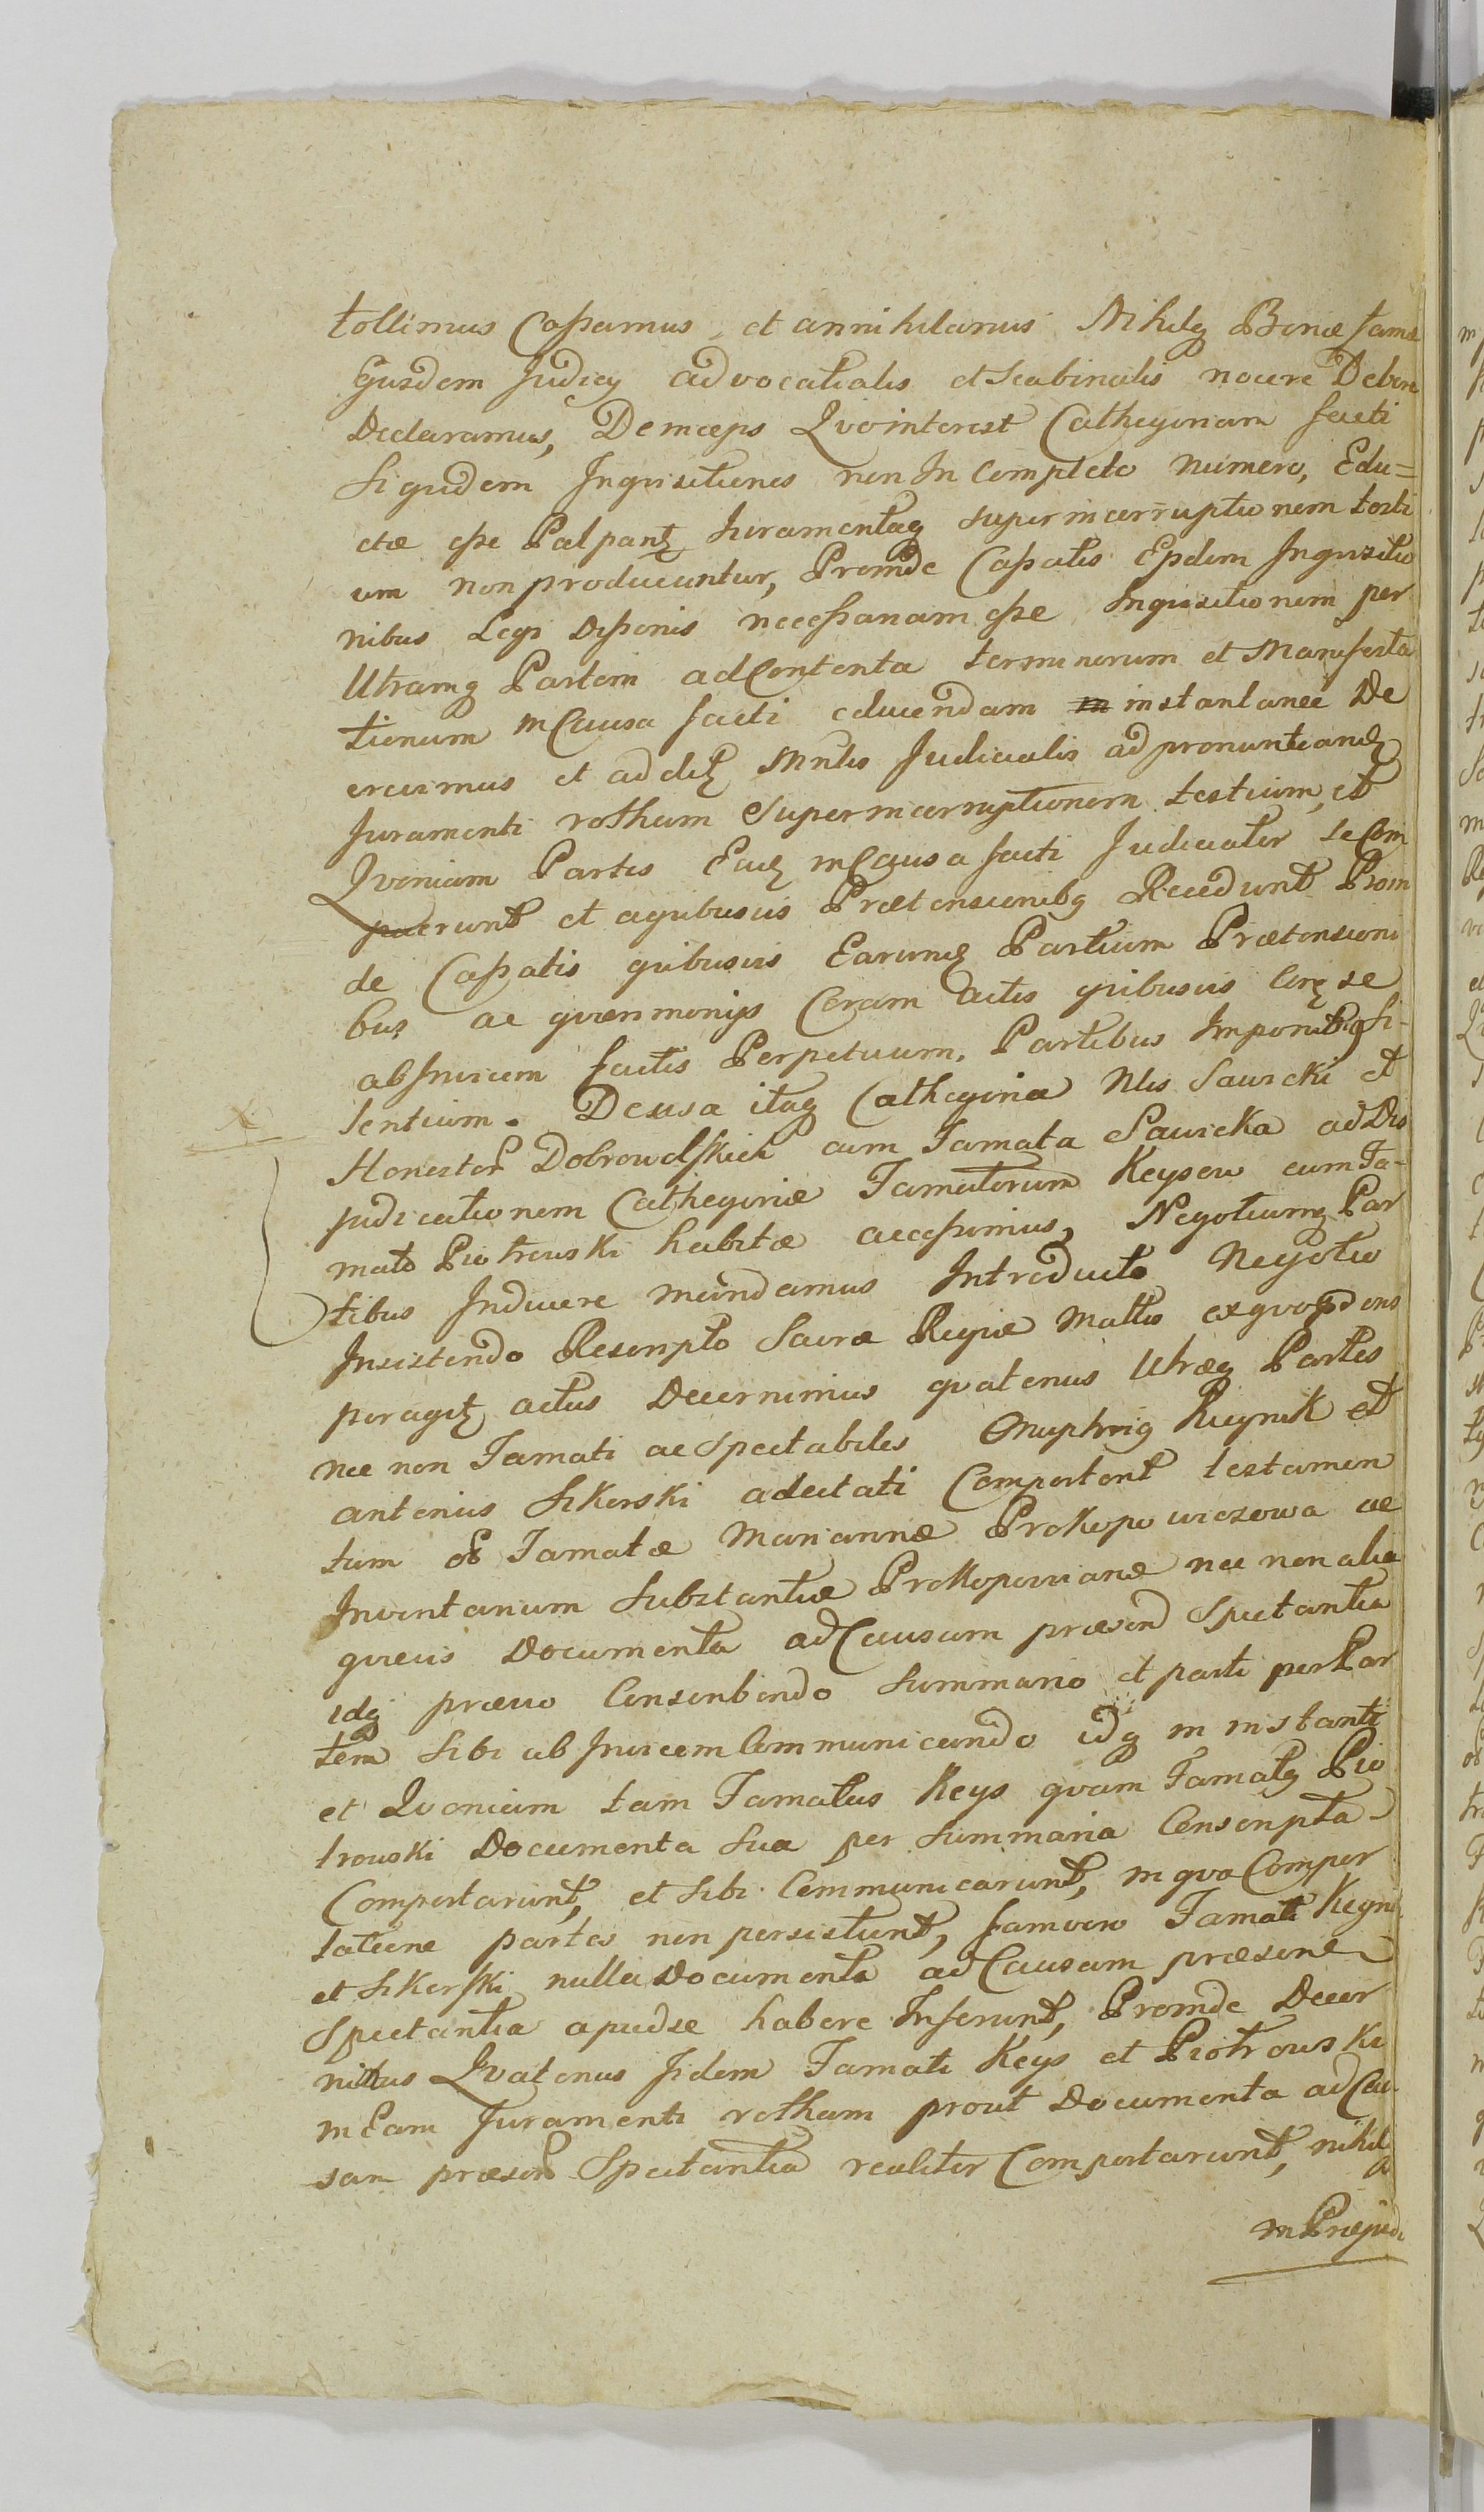 tollimus Cassamus, et annihilamus Nihilq Bonæ famæ
Ejusdem Judicij advocatialis et Scabinalis nocere Debere
Declaramus, Deinceps Qvointerest Cathegoriam facti
Siquidem Inquisitiones non In Completo numero, Edu=
ctæ esse Palpantq Juramentaq super incorruptionem testi
um non producuntur, Proinde Cassatis Ejsdem Inquisitio
nibus Legi Dissonis necessariam esse Inquisitionem per
Utramq Partem ad Contenta terminorum et Manifesta
tionum in Causa facti educendam instantanee De
crevimus et addito Mnlis Judicialis ad pronuntiandq
Juramenti rotham Super incorruptionem testium, et
Qvoniam Partes Eædq in Causa facti Judicialiter se Com
paerunt et a quibusvis Prætensionibq Recedunt Proin
de Cassatis quibusvis Earundq Partium Prætensioni
bus ac qværimonijs Coram actis quibusvis Corq se
ab Invicem factis Perpetuum Partibus Imponitq Si-
lentium. Decisa itaq Cathegoria Nlis Sawicki et
Honestor Dobrowolskich cum Famata Sawicka ad Dis
judicationem Cathegoriæ Famatorum Keysow cum Fa-
mato Piotrowski habitæ accessimus, Negotiumq Par
tibus Inducere mandamus Introducto Negotio
Insistendo Rescripto Sacræ Regiæ Mattis ex quo pdens
peragitq actus Decernimus quatenus Utræq Partes
nec non Famati ac Spectabiles Onuphrig Kieynik et
Antonius Sikorski adcitati Comportent testamen
tum ol Famatæ Mariannæ Prokopowiczowa ac
Inventarium Substantiæ Prokopovianæ nec non alia
quævis Documenta ad Causam præsend Spectantia
idq prævio Conscribendo Summario et parti per Par
tem Sibi ab Invicem Communicando idq in instanti
et Qvoniam tam Famatus Keys quam Famatq Pio
trowski Documenta Sua per Summaria Conscripta
Comportarunt, et Sibi Communicarunt, in qva Compor
tatione partes non persistunt, Jam vero Famati Kieyni
et Sikorski nulla Documenta ad Causam præsend
Spectantia apud se habere Inferunt, Proinde Decer
nittus Qvatenus Jidem Famati Keys et Piotrowski
in Eam Juramenti rotham prout Documenta ad Cau
sam præsend Spectantia realiter Comportarunt, nihilq
in Præjudi